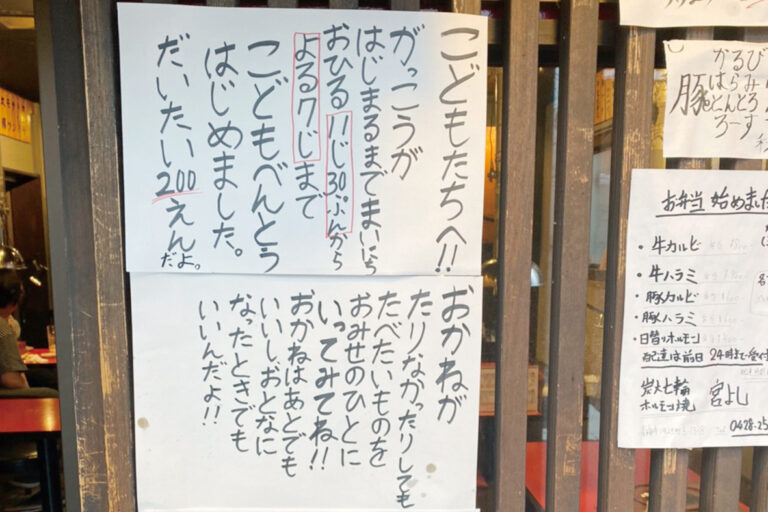 こどもたちへ!!
がっこうが
はじまるまでまいにち
おひる11じ30ぷんから
よる7じまで
こどもべんとう
はじめました。
だいたい200えんだよ。
おかねが
たりなかったりしても
たべたいものを
おみせのひとに
いってみてね!!
おかねはあとでも
いいし、おとなに
なったときでも
いいんだよ!!
かるび
はらみ
とんとろ
ろーす
豚
お弁当 始めました
・牛カルビ
・牛ハラミ
・豚カルビ
・豚ハラミ
・日替りホルモン
配達は前日24時まで受付
炭火七輪
ホルモン焼
宮よし
0428-25